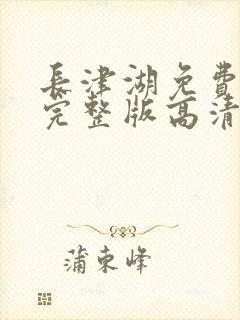 長津湖免費
完整版高清
蒲東峰